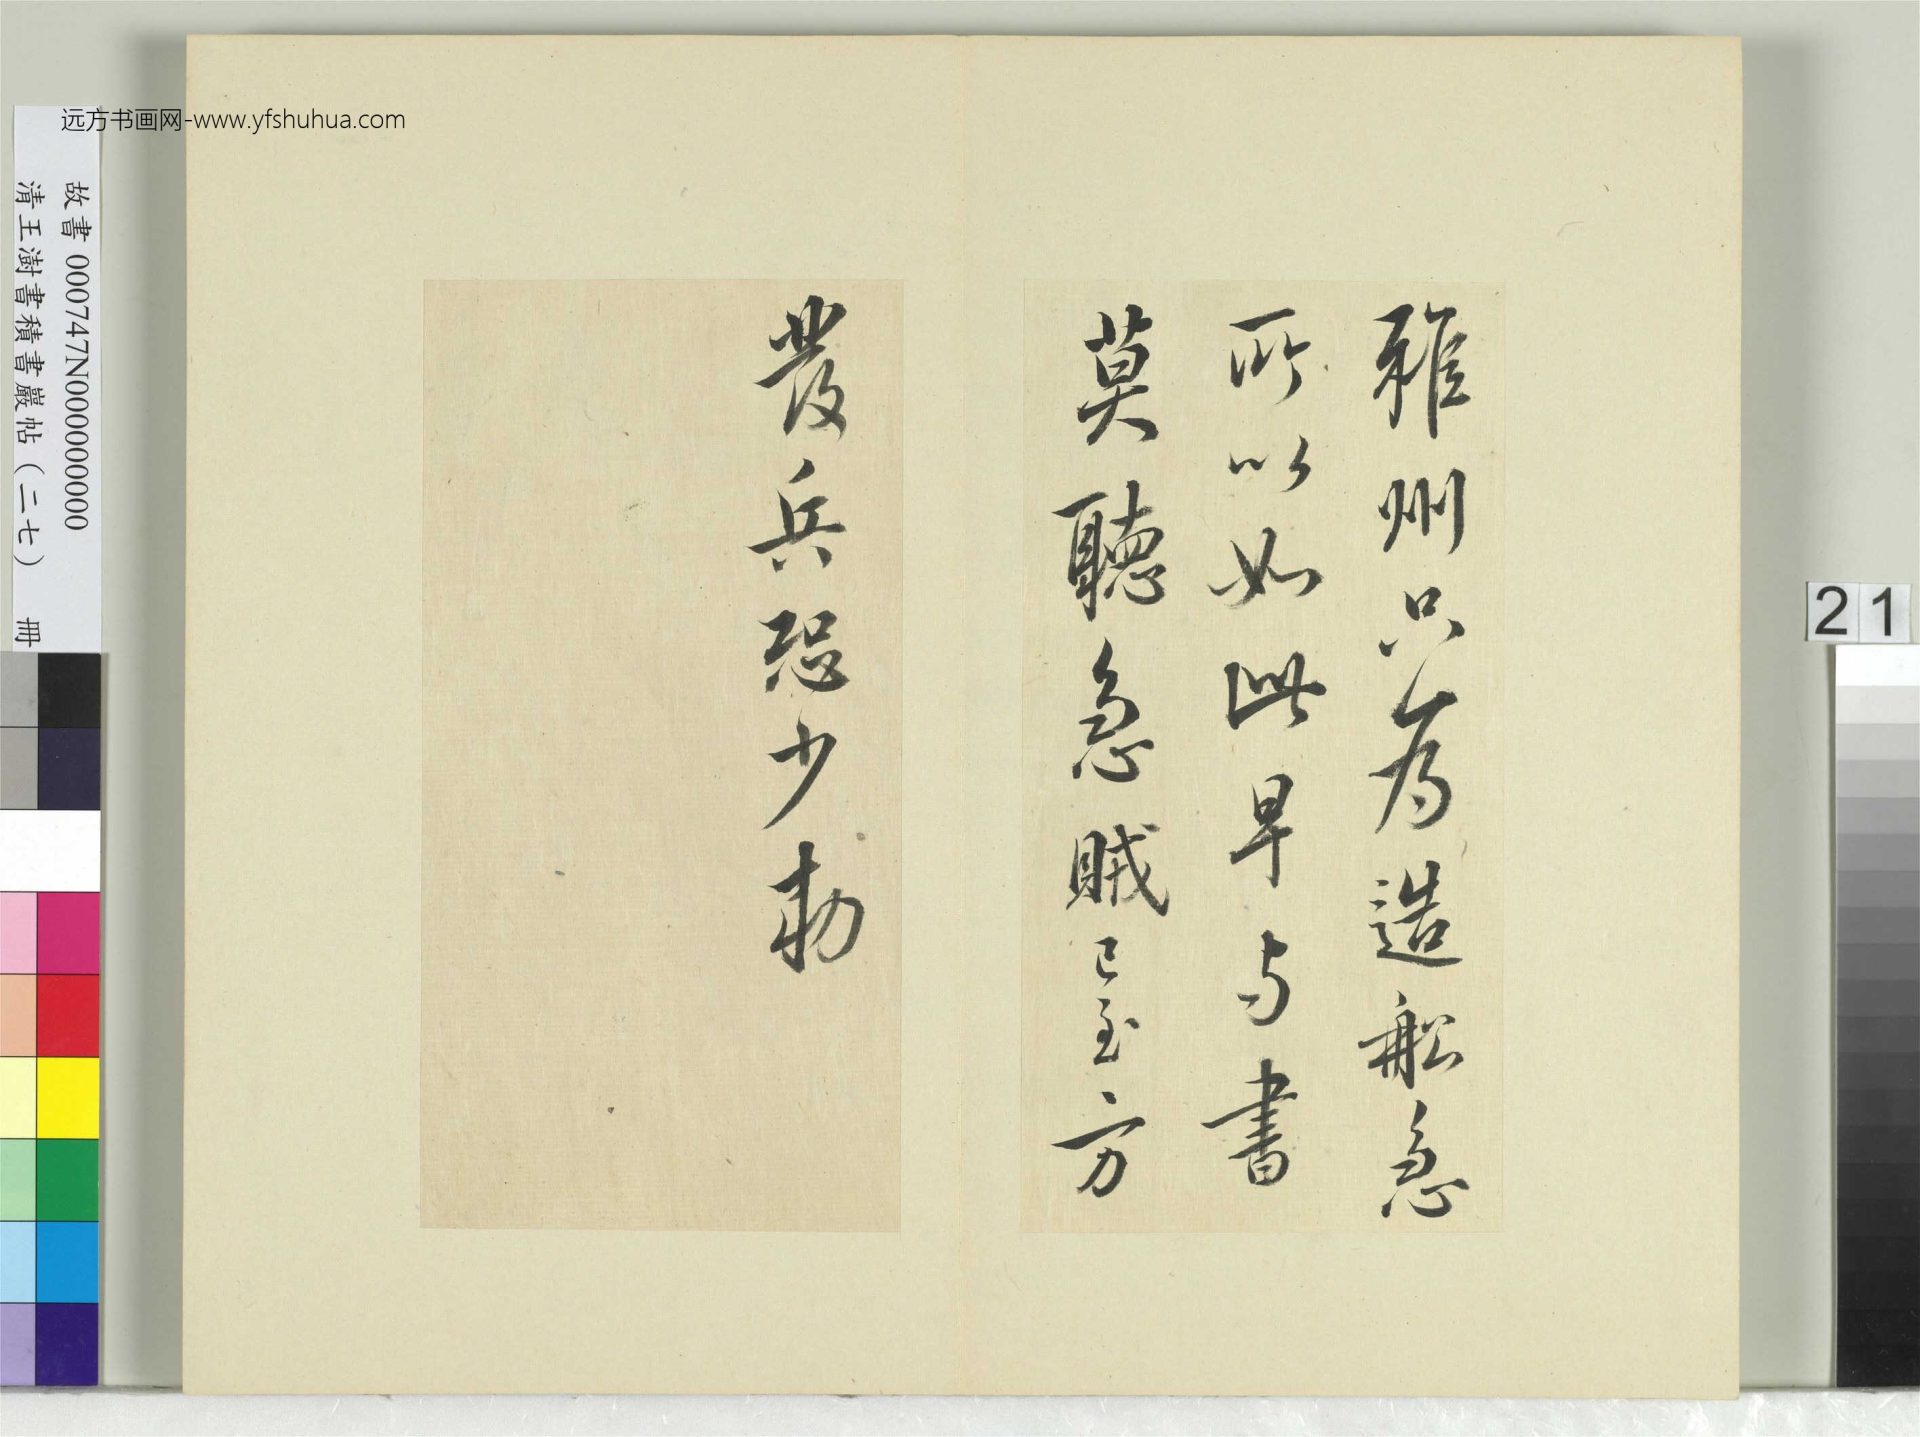 雅州只為造船急
所以如此早与書
莫聽急賊已至方
發兵恐少勅
远方书画网-www.yfshuhua.com
故書 000747N000000000
清王澍書積書巖帖(二七) 冊
21